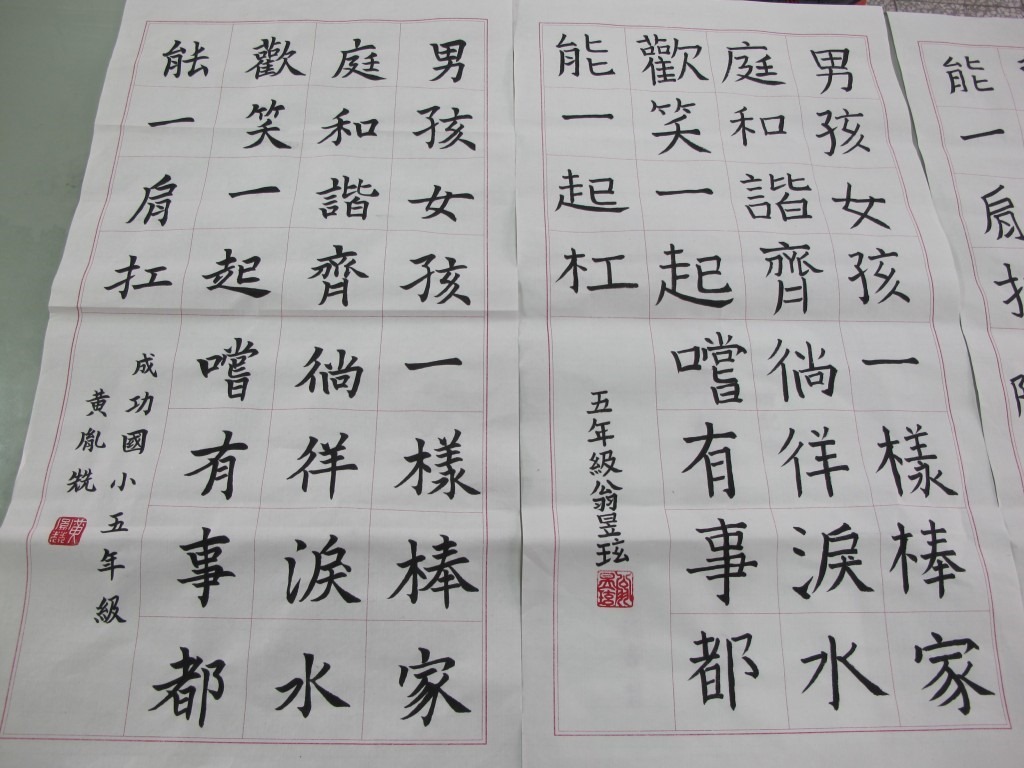 男孩女孩一樣棒家
庭和諧齊徜徉淚水
歡笑一起嚐有事都
能一肩扛
成功國小五年級
黃胤兟
男孩女孩一樣棒家
庭和諧齊徜徉淚水
歡笑一起嚐有事都
能一起杠
五年級翁昱玹
能一肩